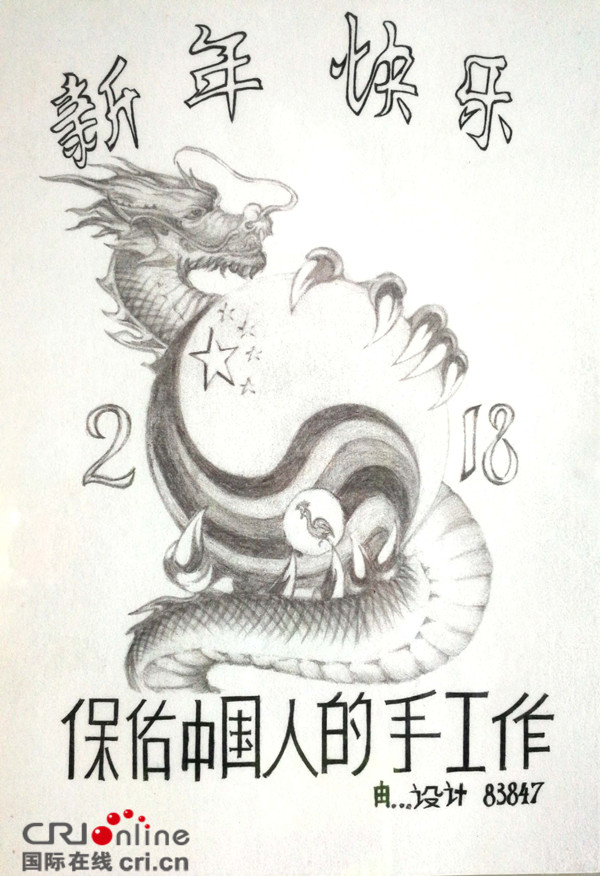 新年快乐
2 18
保佑中国人的手工作
由...设计 83847
CRI online
国际在线 cri.cn